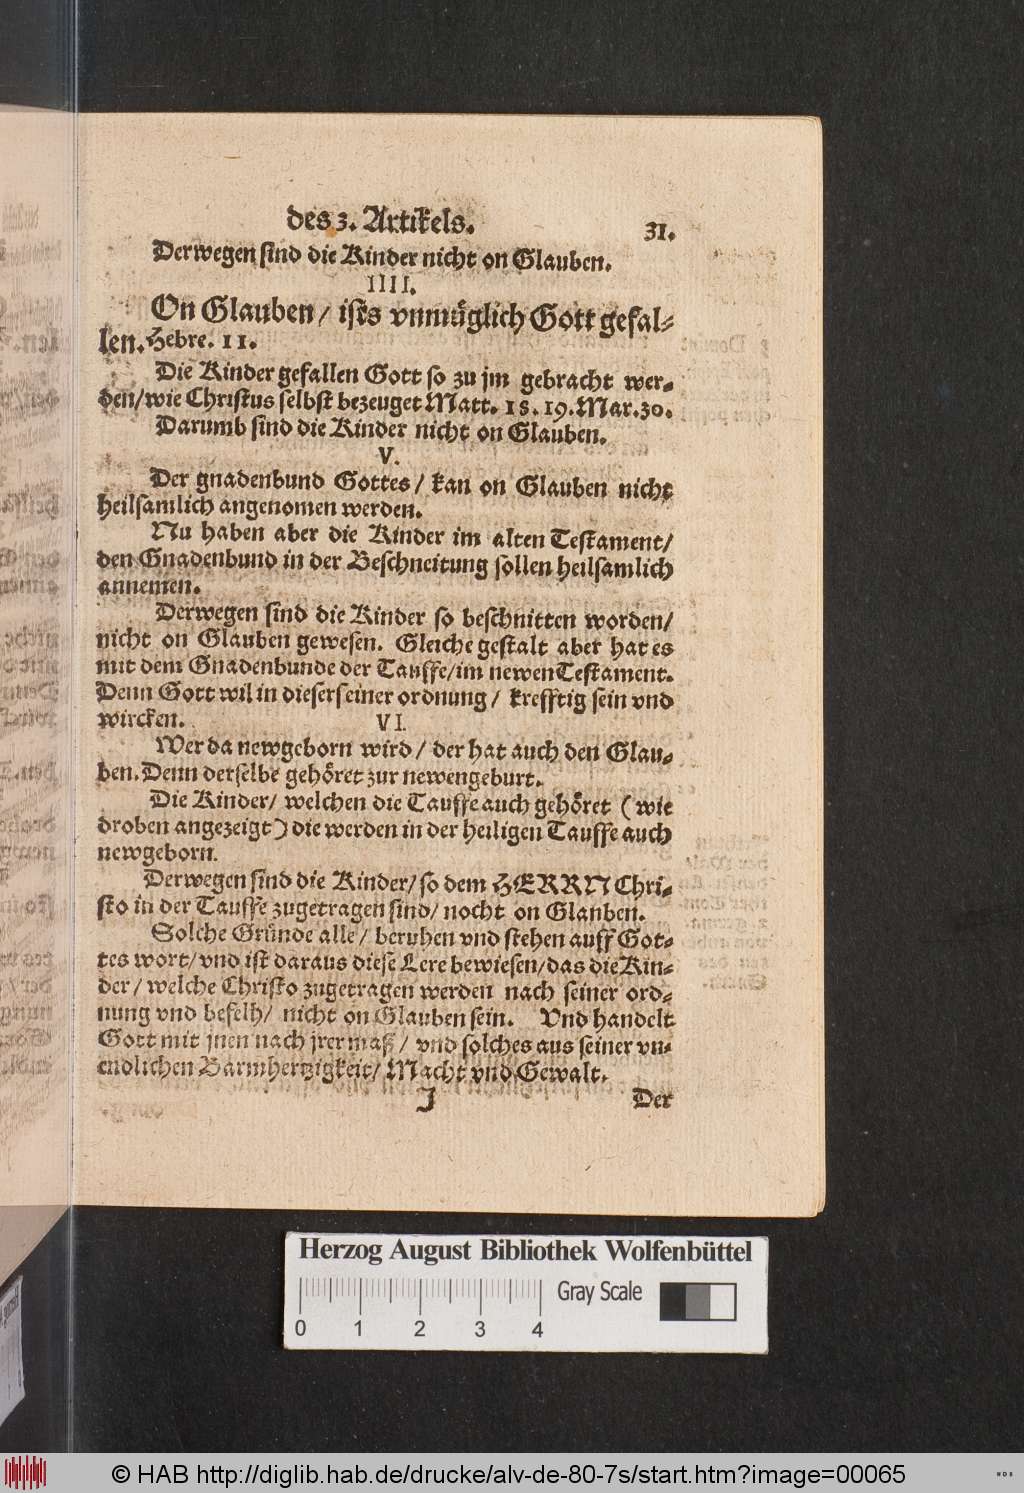 des 3. Artikels. 31.
Derwegen sind die Kinder nicht on Glauben.
IIII.
On Glauben / ists vnmüglich Gott gefal-
len. Hebre. 11.
Die Kinder gefallen Gott so zu jm gebracht wer-
den / wie Christus selbst bezeuget Matt. 18. 19. Mar. 30.
Darumb sind die Kinder nicht on Glauben.
V.
Der gnadenbund Gottes / kan on Glauben nicht
heilsamlich angenomen werden.
Nu haben aber die Kinder im alten Testament /
den Gnadenbund in der Beschneitung sollen heilsamlich
annemen.
Derwegen sind die Kinder so beschnitten worden /
nicht on Glauben gewesen. Gleiche gestalt aber hat es
mit dem Gnadenbunde der Tauffe / im newen Testament.
Denn Gott wil in dieser seiner ordnung / krefftig sein vnd
wircken.
VI.
Wer da newgeborn wird / der hat auch den Glau-
ben. Denn derselbe gehöret zur newengeburt.
Die Kinder / welchen die Tauffe auch gehöret (wie
droben angezeigt) die werden in der heiligen Tauffe auch
newgeborn.
Derwegen sind die Kinder / so dem HERRN Chri-
sto in der Tauffe zugetragen sind / nocht on Glanben.
Solche Gründe alle / beruhen vnd stehen auff Got-
tes wort / vnd ist daraus diese Lere bewiesen / das die Kin-
der / welche Christo zugetragen werden nach seiner ord-
nung vnd befelh / nicht on Glauben sein. Vnd handelt
Gott mit jnen nach jrer maß / vnd solches aus seiner vn-
endlichen Barmhertzigkeit / Macht vnd Gewalt.
J Der
Herzog August Bibliothek Wolfenbüttel
0 1 2 3 4 Gray Scale
© HAB http://diglib.hab.de/drucke/alv-de-80-7s/start.htm?image=00065